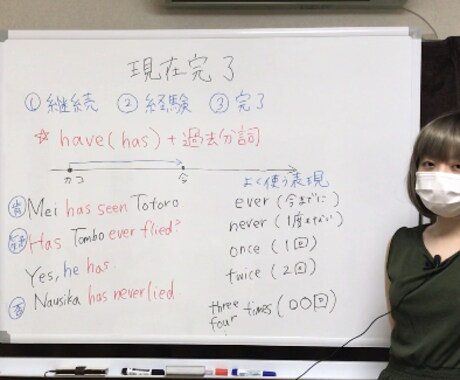 現在完了
① 継続 ② 経験 ③ 完了
☆ have(has) + 過去分詞
カコ 今
よく使う表現
肯 Mei has seen Totoro
ever (今までに)
疑 Has Tombo ever flied?
never (1度もない)
Yes, he has
once (1回)
twice (2回)
否 Nausika has never lied
three times (〇〇回)
four